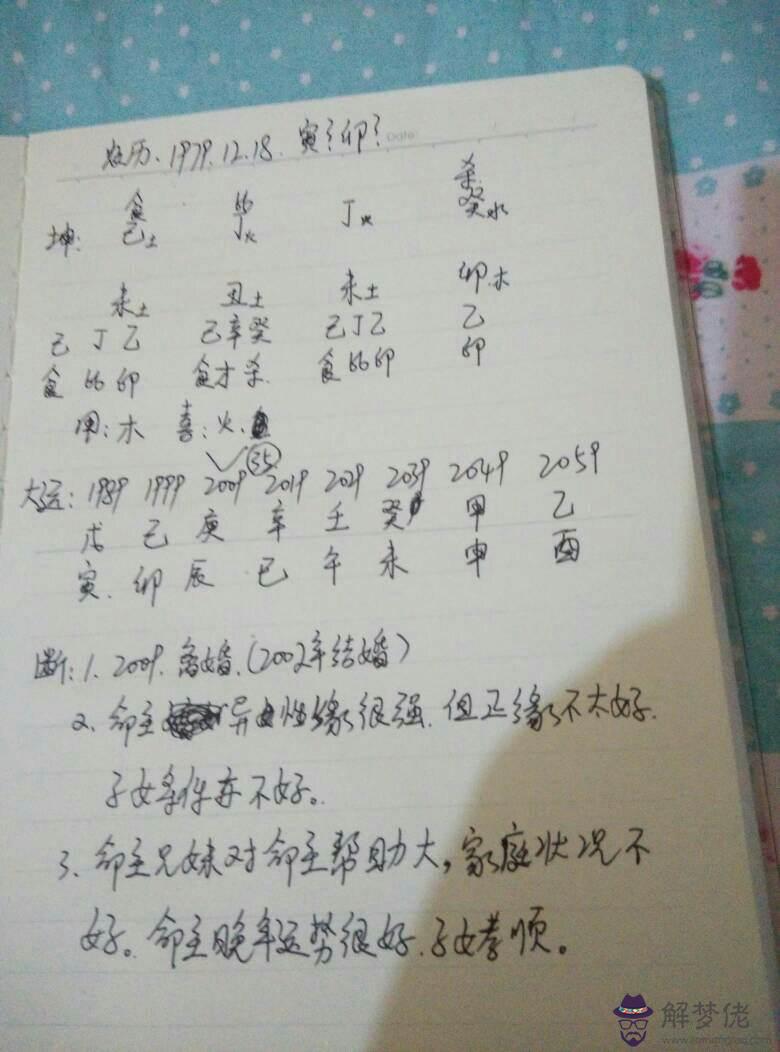 农历.1979.12.18. 寅?卯? Date:
食 比 杀
坤: 己土 丁火 丁火 癸水
未土 丑土 未土 卯木
己丁乙 己辛癸 己丁乙 乙
食比卩 食才杀. 食比卩 卩
用:木 喜:火.
35
大运: 1989 1999 2009 2019 2029 2039 2049 2059
戊 己 庚 辛 壬 癸 甲 乙
寅. 卯 辰 巳 午 未 申 酉
断:1. 2009. 离婚.(2002年结婚)
2. 命主异性缘很强. 但正缘不太好.
子女条件亦不好。
3. 命主兄妹对命主帮助大,家庭状况不
好。命主晚年运势很好.子女孝顺。
解梦佬